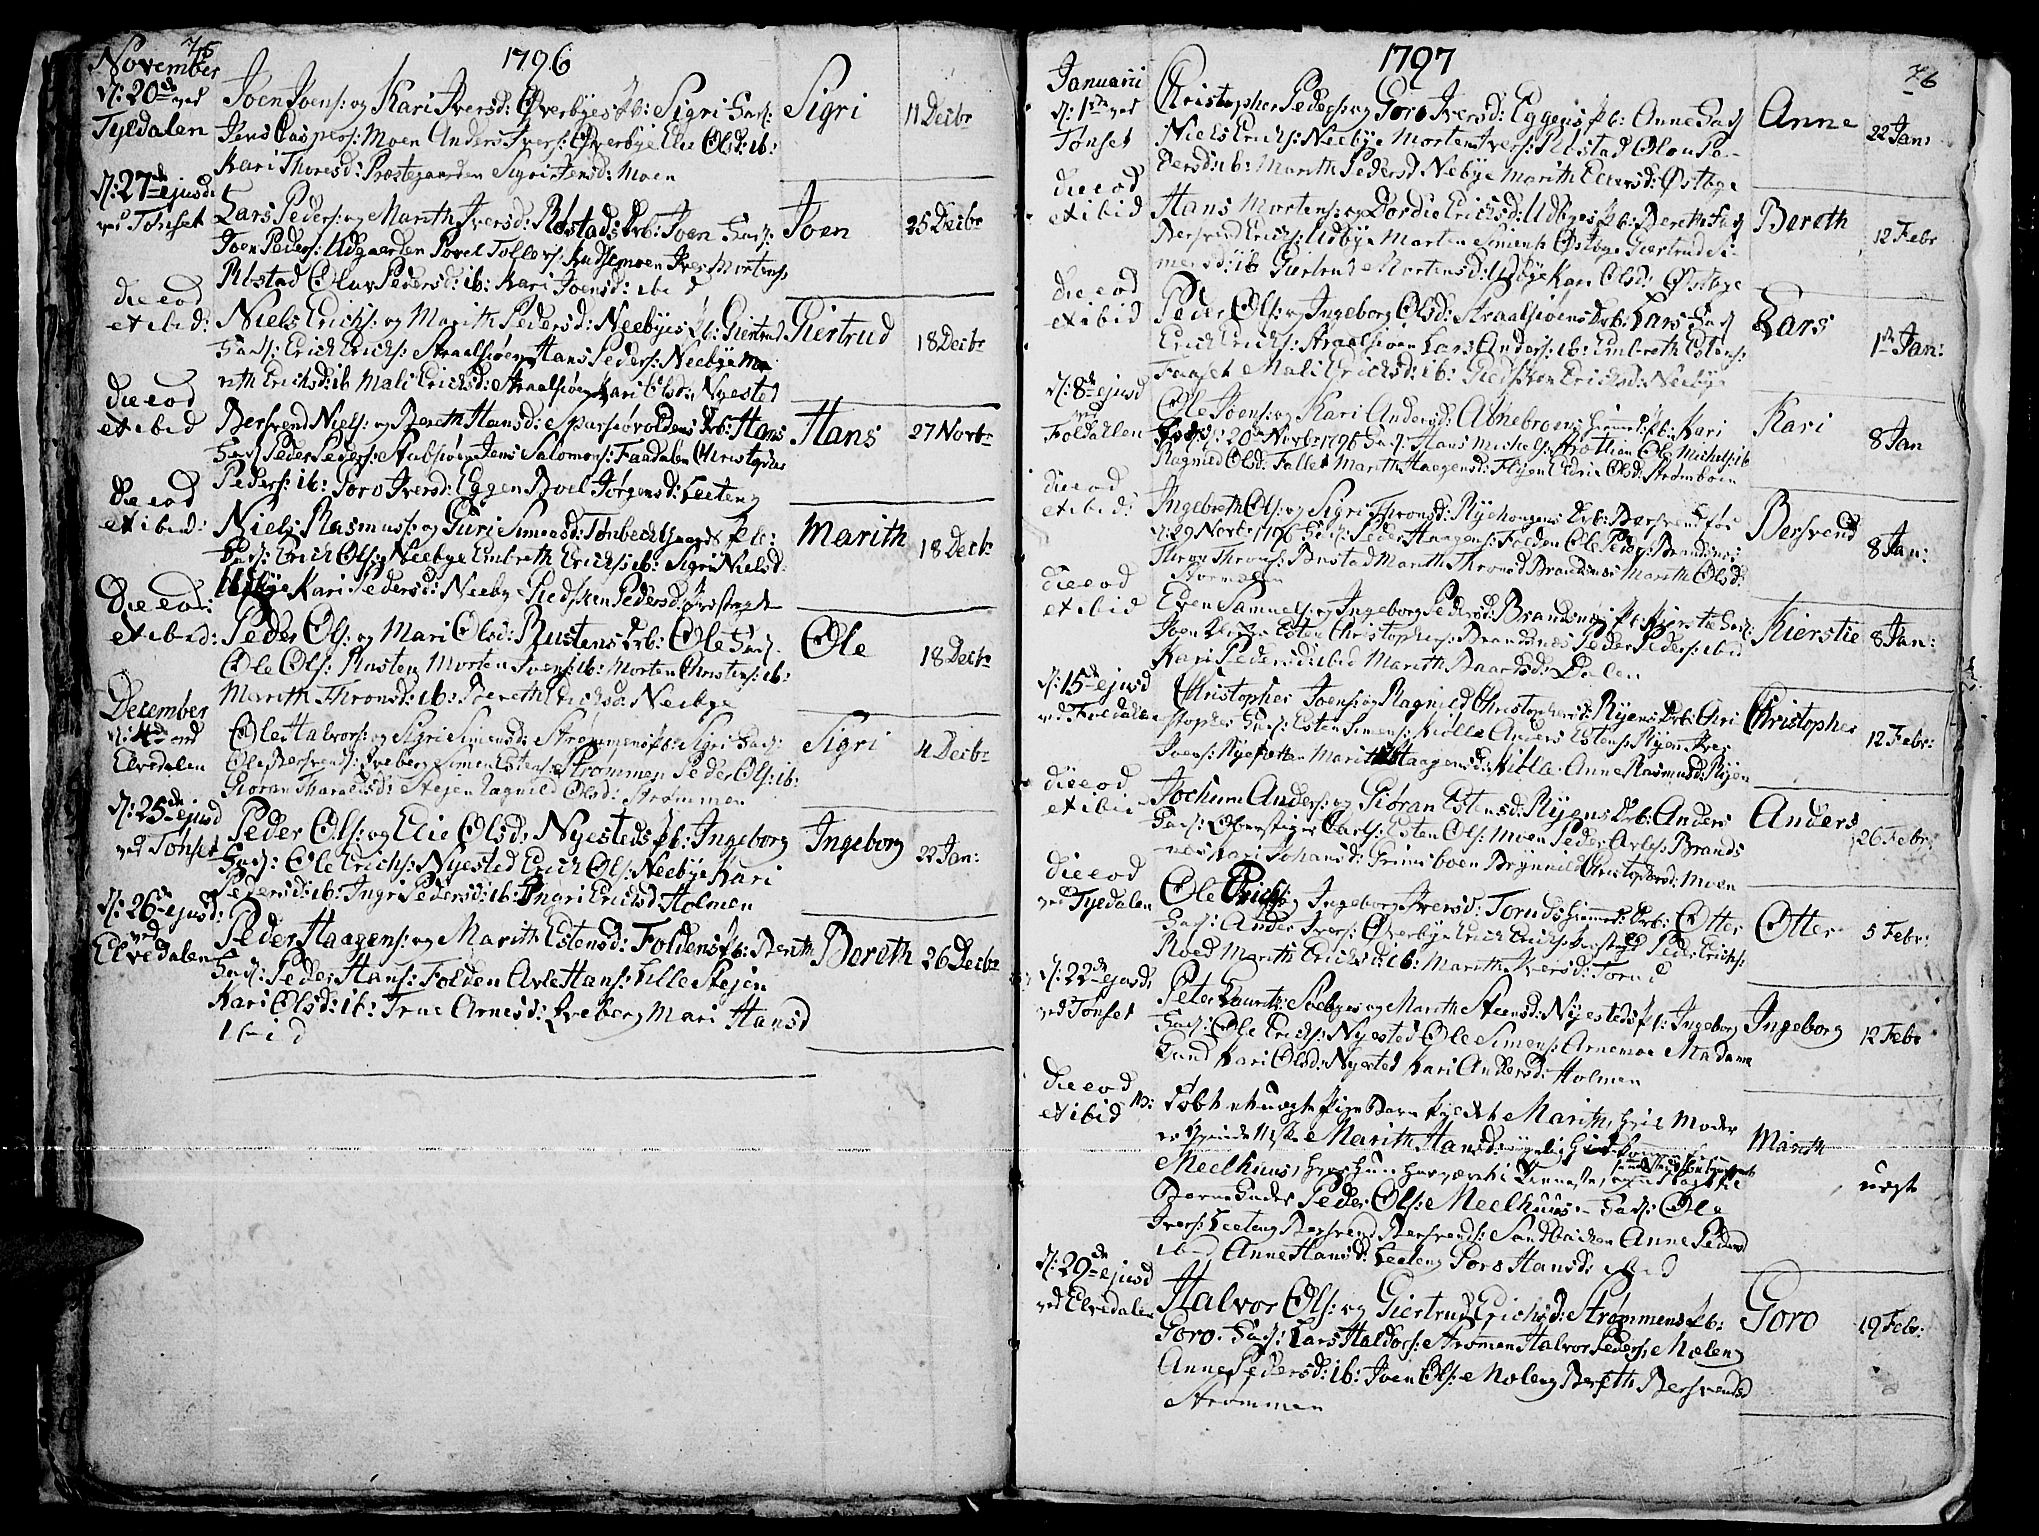 75
November
1796
d: 20de ved
Tyldalen
Joen Joens: og Kari Ivers: Qverbyes Pb: Sigri Fad:
Jens Caspers: Moen Anders Ivers: Qverbye Elie Olsd: ib:
Kari Thoresd: Præstegaarden Sigri Estensd: Moen
Sigri
11 Decbr
d: 27de ejusd:
ved Tønset
Lars Peders: og Marith Iversd: Rostads Drb: Joen Fad:
Joen Peders: Udgaarden Povel Tollefs: Iver Mortens:
Rostad Oluv Pedersd: ib: Kari Joensd: ibid
Joen
25 Decbr
die eod
et ibid:
Niels Erichs: og Marith Pedersd: Neebyes Pb: Giertrud
Fad: Erich Erichs: Straalsiøen Hans Peders: Neebye Ma
rith Erichsd: ib Mali Erichsd: Straalsiøen Kari Olsd: Nyested
Giertrud
18 Decbr
die eod
et ibid
Bersvend Niels: og Bereth Hansd: Sparsiøvoldens Drb: Hans
Fad: Peder Peders: Stubsiøen Jens Salomons: Faadalen Christopher
Peders: ib: Goro Iversd: Eggen Boel Jørgensd: Leeteng
Hans
27 Novbr
die eod
et ibid:
Niels Rasmus: og Guri Simensd: Tønbechsgaards Pb:
Fad: Erich Ols: Neebye Embreth Erichs: ib: Sigri Nielsd:
Kari Pedersd: Neebye Siedsken Pedersd:
Marith
18 Decbr
die eod:
et ibid:
Peder Ols: og Mari Olsd: Rustens Drb: Ole Fad:
Ole Ols: Rusten Morten Svens: ib: Morten Christens: ib:
Marith Thronsd: ib: Bereth Erichsd: Neebye
Ole
18 Decbr
December
d: 4de ved
Elvedalen
Ole Halvors: og Sigri Simensd: Strømmens Pb: Sigri Fad:
Ole Bersvends: Qveberg Simen Estens: Strømmen Peder Ols: ib:
Gioran Tharaldsd: Steien Ragnild Olsd: Strømmen
Sigri
4 Decbr
d: 25de ejusd
ved Tønset
Peder Ols: og Elie Olsd: Nyesteds Pb: Ingeborg
Fad: Ole Erichs: Nyested Erich Ols: Neebye Kari
Pedersd: ib: Ingri Pedersd: ib: Ingri Erichsd Holmen
Ingeborg
22 Jan:
d: 26de ejusd:
ved
Elvedalen
Peder Haagens: og Marith Estensd: Foldens Pb: Bereth
Fad: Peder Hans: Folden Arle Hans: Lille Steien
Kari Olsd: ib: True Arnesd: Qveberg Mari Hansd
ibid
Bereth
26 Decbr
76
Januarii
1797
d: 1ste ved
Tønset
Christopher Peders: og Goro Iversd: Eggens Pb: Anne Fad:
Niels Erichs: Neebye Morten Ivers: Rostad Olou Pe-
dersd: ib: Marith Pedersd Nebye Marith Ellersd: Østbye
Anne
22 Jan:
die eod
et ibid
Hans Mortens: og Dordie Erichsd: Udbyes Pb: Bereth Fad:
Bersvend Erichs: Udbye Morten Simens: Østbye Giertrud Si-
mensd: ib Giertrud Mortensd: Udbye Kari Olsd: Østbye
Bereth
12 Febr
die eod
et ibid
Peder Ols: og Ingeborg Olsd: Straalsiøens Drb: Lars Fad:
Erich Erichs: Straalsiøen Lars Anders: ib: Embreth Estens:
Faaset Mali Erichsd: ib: Siedsken Erichsd: Neebye
Lars
1ste Jan:
d: 8de ejusd
ved
Foldallen
Ole Joens: og Kari Andersd: Abnebroens Pb: Kari
20de Novbr 1796 Fad: Hans Michels: Ole Michels: ib
Ragnild Olsd: Follet Marith Haagensd: Elien Olsd: Strømboen
Kari
8 Jan
die eod
et ibid:
Ingebreth Ols: og Sigri Thronsd: Ryehougens Drb: Bersvend
d: 29 Novbr 1796 Fad: Peder Haagens: Folden Ole Peders: Brandsnes:
Thron Throns: Bustad Marith Thronsd Brandsnes Marith Olsd:
Bersvend
8 Jan:
die eod
et ibid
Even Samuels: og Ingeborg Pedersd: Brandsnes Pb Kierstie Fad:
Joen Esten Christophers: Brandsnes Peder Peders: ibid
Kari Pedersd: ibid Marith Baardsd: Dalen
Kierstie
8 Jan:
d: 15de ejusd
ved Foldalen
Christopher Joens: og Ragnild Christophersd: Ryens Drb: Chri
stopher Fad: Esten Simens: Kiølle Anders Estens: Ryen Iver
Joens: Marith Haagensd: Kiølle Anne Rasmusd: Ryen
Christopher
12 Febr:
die eod
et ibid
Jochum Anders: og Giøran Estensd: Ryens Drb: Anders
Fad: Oberstiger Carls: Esten Ols: Moen Peder Arles: Brands
nes Kari Johansd: Grimsboen Brynnild Christophersd: Moen
Anders
26 Febr:
die eod
ved Tyldalen
Ole Erichs: og Ingeborg Iversd: Toruds Drb: Otter
Fad: Anders Ivers: Qverbye Erich Erichs: Peder Erichs:
Roed Marith Erichsd: ib: Marith Iversd: Torud
Otter
5 Febr:
d: 22de ejusd:
ved Tønset
Peter Lourits: Solbyes og Marith Steensd: Nyesteds Pb: Ingeborg
Fad: Ole Erichs: Nyested Ole Simens: Arnemoe Madame
Lund Kari Olsd: Nyested Kari Andersd: Holmen
Ingeborg
12 Febr
die eod
et ibid
N: Døbt et uægte Pige Barn kaldet Marith, hvis Moder
er Marith Hansd:
Meelhuus, hvor hun har været i Tienneste,
Barnefader Peder Ols: Meelhuus - Fad: Ole
Ivers: Leeteng Bersvend Bersvends: Sandbacken Anne Pedersd
ibid Anne Hansd: Leeteng Goro Hansd: ibid
Marith
uægte
d: 29de ejusd
ved Elvedalen
Halvor Ols: og Giertrud Erichsd: Strømmens Pb:
Goro. Fad: Lars Haldors: Strømen Halvor Peders: Moleng
Anne Pedersd: ib: Joen Ols: Moleng Bereth Bersvendsd
Strømmen
Goro
19 Febr: